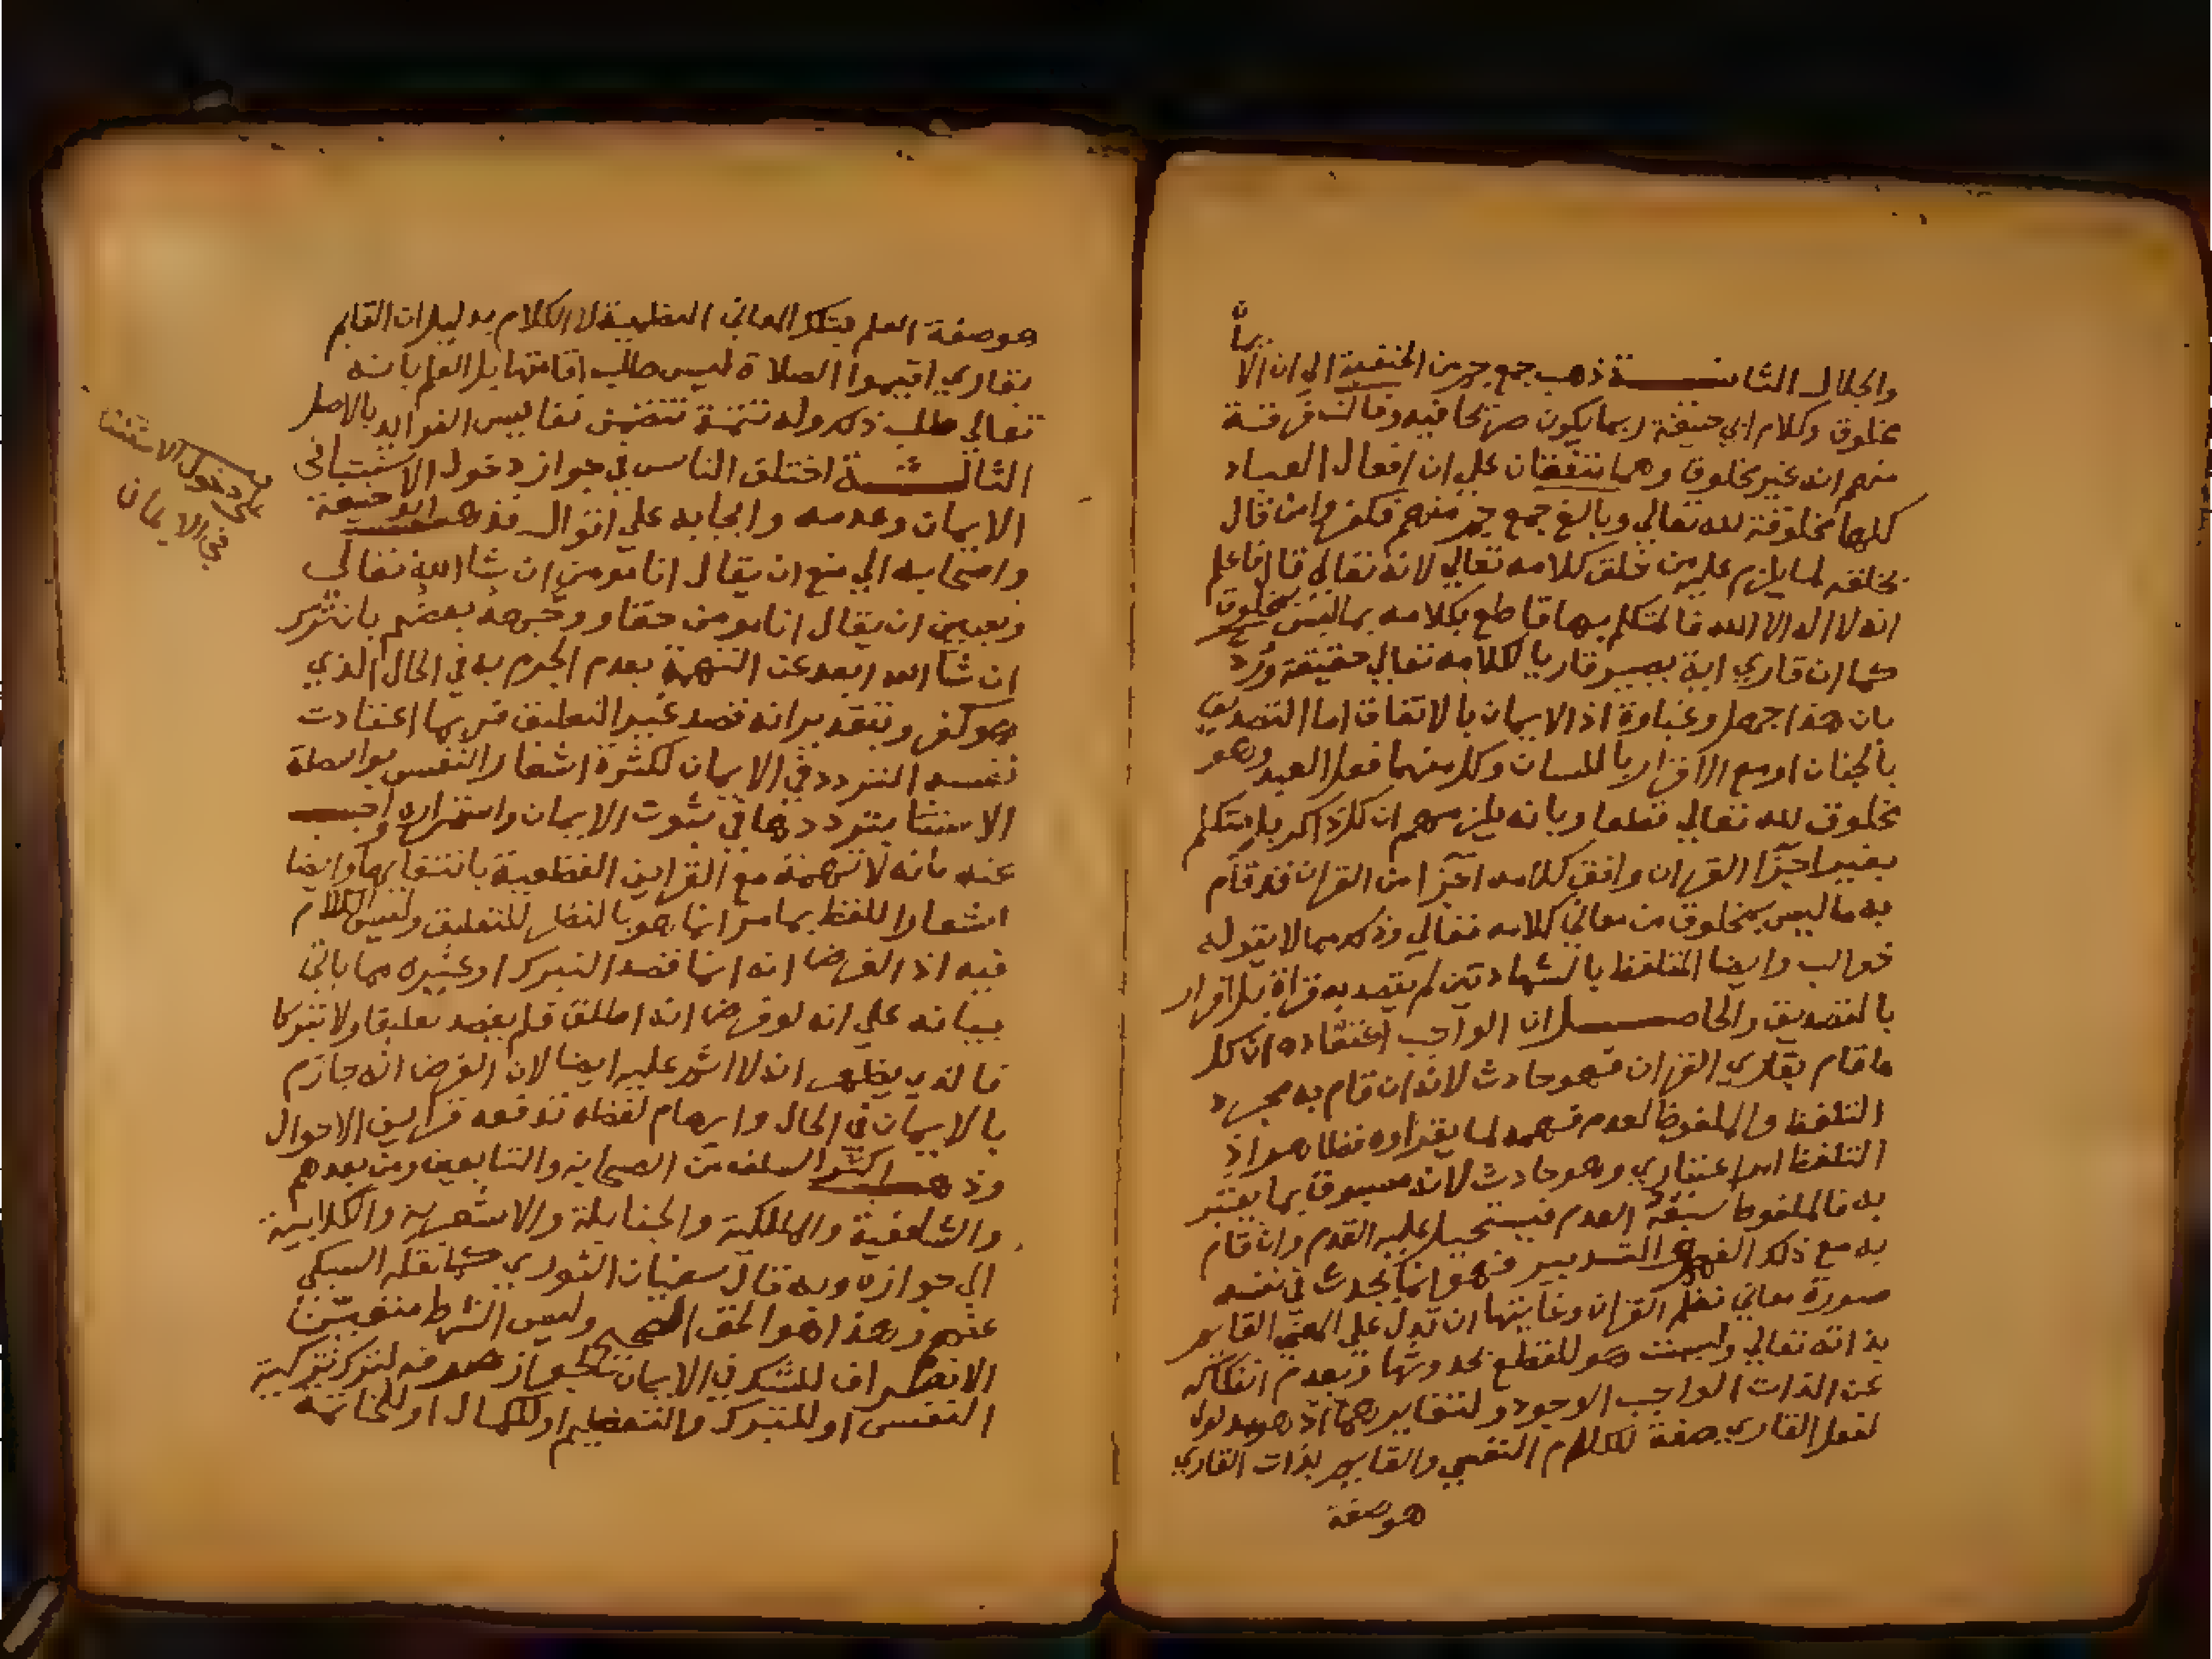 والجلال الثانية ذهب جمع جم من الحنفية الى ان الايمان
مخلوق وكلام ابي حنيفة ربما يكون صريحا فيه وقالت فرقة
منهم انه غير مخلوق وهما متفقتان علي ان افعال العباد
كلها مخلوقة لله تعالي وبالغ جمع جم منهم فكفروا من قال
بخلقه لما يلزم عليه من خلق كلامه تعالي لانه تعالى قال فاعلم
انه لا اله الا الله فالمتكلم بها قاطع بكلامه بما ليس بمخلوق
كما ان قاري اية يصير قاريا لكلامه تعالي حقيقة ورد
بان هذا جهل وغباوة اذ الايمان بالاتفاق اما التصديق
بالجنان او مع الاقرار باللسان وكل منهما فعل العبد وهو
مخلوق لله تعالي قطعا وبانه يلزمهم ان كل ذاكر بل متكلم
بغير اجزا القران وافق كلامه اجزا من القران قد قام
به ما ليس بمخلوق من معاني كلامه تعالي وذلك مما لا يقوله
ذو لب وايضا المتلفظ بالشهادتين لم يقصد به قراة بل اقرار
بالتصديق والحاصل ان الواجب اعتقاده ان كل
ما قام بقاري القران فهو حادث لانه ان قام به مجرد
التلفظ والملفوظ لعدم فهمه لما يقراوه فظاهر اذ
التلفظ امر اعتباري وهو حادث لانه مسبوق بما يعتبر
به فالملفوظ سبقه العدم فيستحيل عليه القدم وان قام
به مع ذلك الفهم والتدبير فهو انما يحدث في نفسه
صورة معاني نظم القران وغايتها ان تدل علي المعني القايم
بذاته تعالي وليست هو للقطع بحدوثها وبعدم انفكاكه
عن الذات الواجب الوجود ولتغايرهما اذ هو مدلول
لفعل القاري صفة للكلام النفسي والقايم بذات القاري
هو صفة
هو صفة العلم بتلك المعاني النظمية لا الكلام بدليل ان القايم
بقاري اقيموا الصلاة ليس طلب اقامتها بل العلم بانه
تعالي طلب ذلك وله تتمة تتضمن نفايس الفوايد بالاصل
الثالثة اختلف الناس في جواز دخول الاستثنا في
الايمان وعدمه وايجابه علي اقوال فذهب ابو حنيفة
واصحابه الي منع ان يقال انا مومن ان شا الله تعالي
وتعيين ان يقال انا مومن حقا ووجهه بعضهم بان ترك
ان شا الله ابعد عن التهمة بعدم الجزم به في الحال الذي
هو كفر وبتقدير انه قصد غير التعليق فربما اعتادت
نفسه التردد في الايمان لكثرة اشعار النفس بواسطة
الاستثنا بترددها في ثبوت الايمان واستمراره واجيب
عنه بانه لا تهمة مع القراين القطعية بانتفايها وايضا
اشعار اللفظ بما مر انما هو بالنظر للتعليق وليس الكلام
فيه اذ الفرض انه انما قصد التبرك او غيره مما ياتي
بيانه علي انه لو فرض انه اطلق فلم يقصد تعليقا ولا تبركا
فالذي يظهر انه لا اثم عليه ايضا لان الفرض انه جازم
بالايمان في الحال وايهام لفظه تدفعه قراين الاحوال
وذهب اكثر السلف من الصحابة والتابعين ومن بعدهم
والشافعية والمالكية والحنابلة والاشعرية والكلابية
الي جوازه وبه قال سفيان الثوري كما نقله السبكي
عنهم وهذا هو الحق الصحيح وليس الشرط
الانصراف للشك في الايمان لجواز صرفه لترك تزكية
النفس او للتبرك والتعظيم او للكمال او للخاتمة
علي دخول الاستثنا
في الايمان